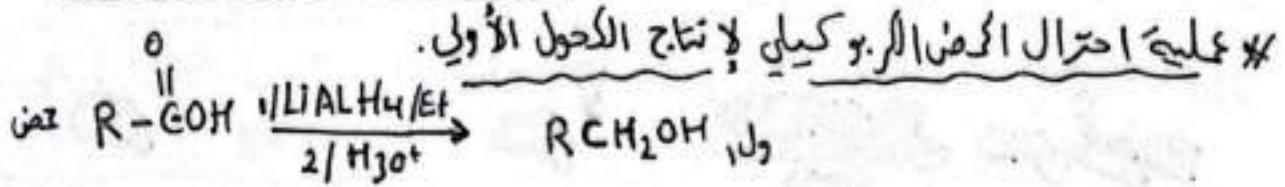 * عملية احتزال الحمض الكربوكسيلي لإنتاج الكحول الأولي.
O
حمض R-COH 1/LiALH4/Et RCH2OH ,ول
2/H3O+